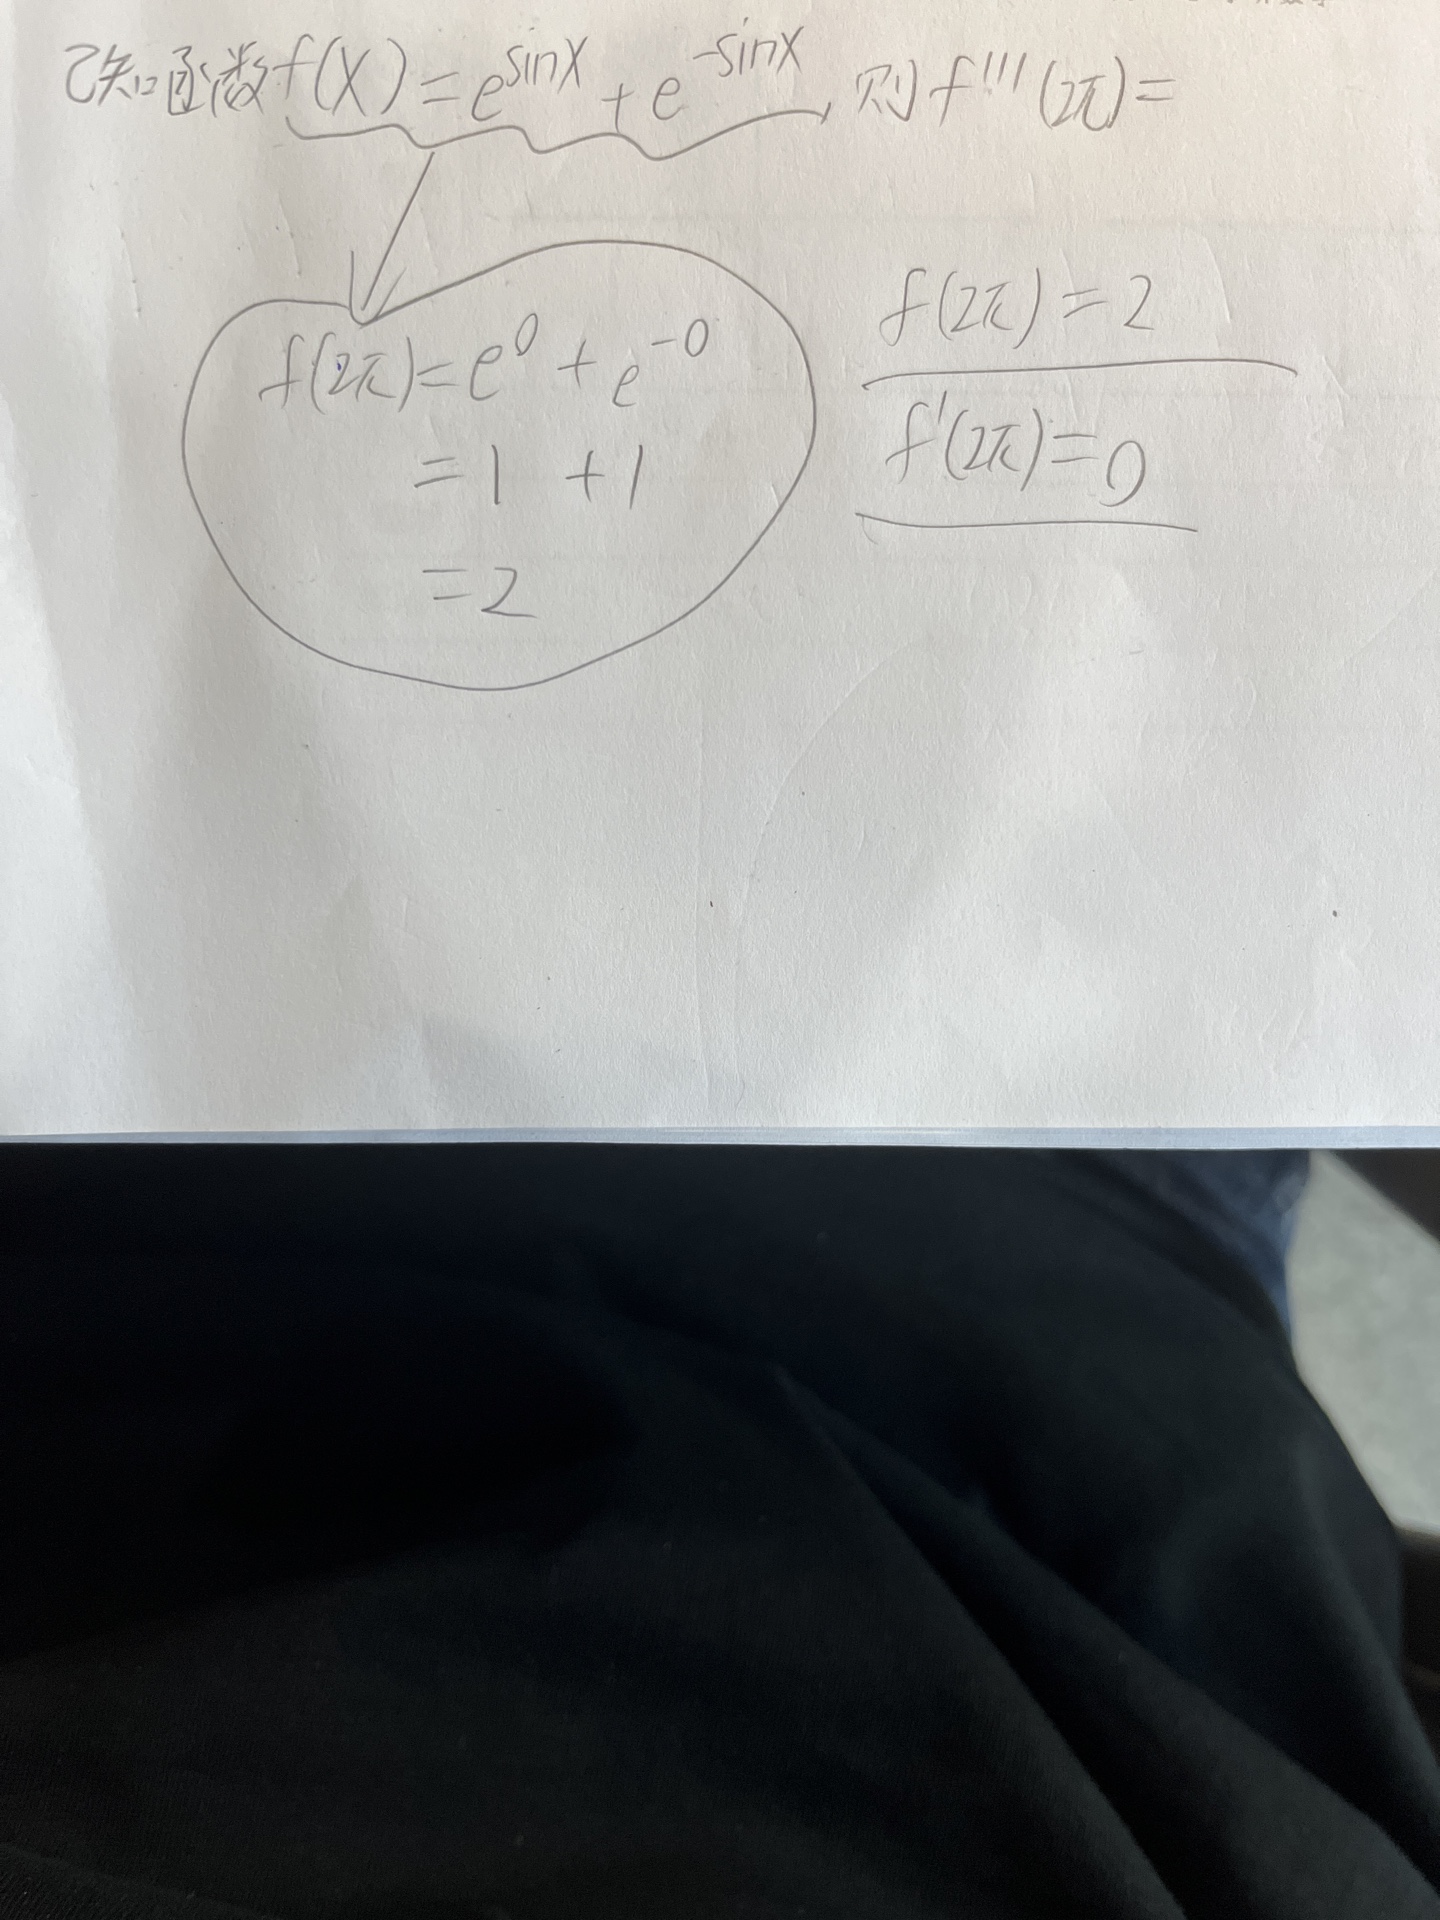 已知函数f(x)=e^sinx+e^-sinx,则f'''(2π)=
f(2π)=e^0+e^-0
=1+1
=2
f(2π)=2
f'(2π)=0